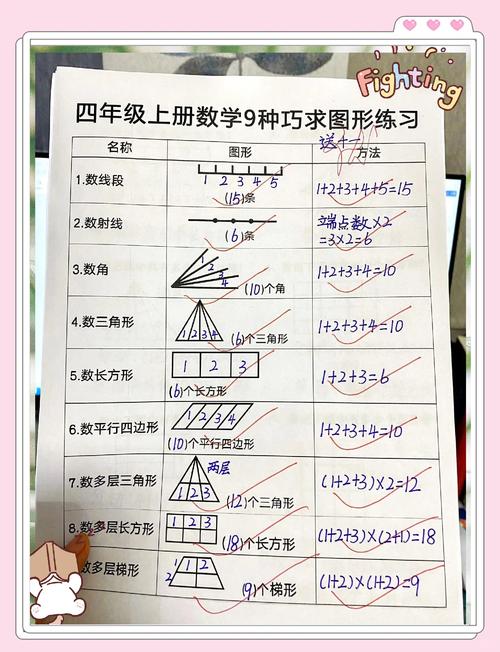 Fighting
四年级上册数学9种巧求图形练习
名称 图形 方法
1.数线段
1 2 3 4 5
(15)条
1+2+3+4+5=15
2.数射线
(6)条
端点数×2
=3×2=6
3.数角
1 2 3 4
(10)个角
1+2+3+4=10
4.数三角形
1 2 3 4
(6)个三角形
1+2+3+4=10
5.数长方形
1 2 3
(6)个长方形
1+2+3=6
6.数平行四边形
1 2 3 4
(10)个平行四边形
1+2+3+4=10
7.数多层三角形
两层
1 2 3
(12)个三角形
(1+2+3)×2=12
8.数多层长方形
1 2 3
(18)个长方形
(1+2+3)×(2+1)=18
数多层梯形
1 1 2
2
(9)个梯形
(1+2)×(1+2)=9